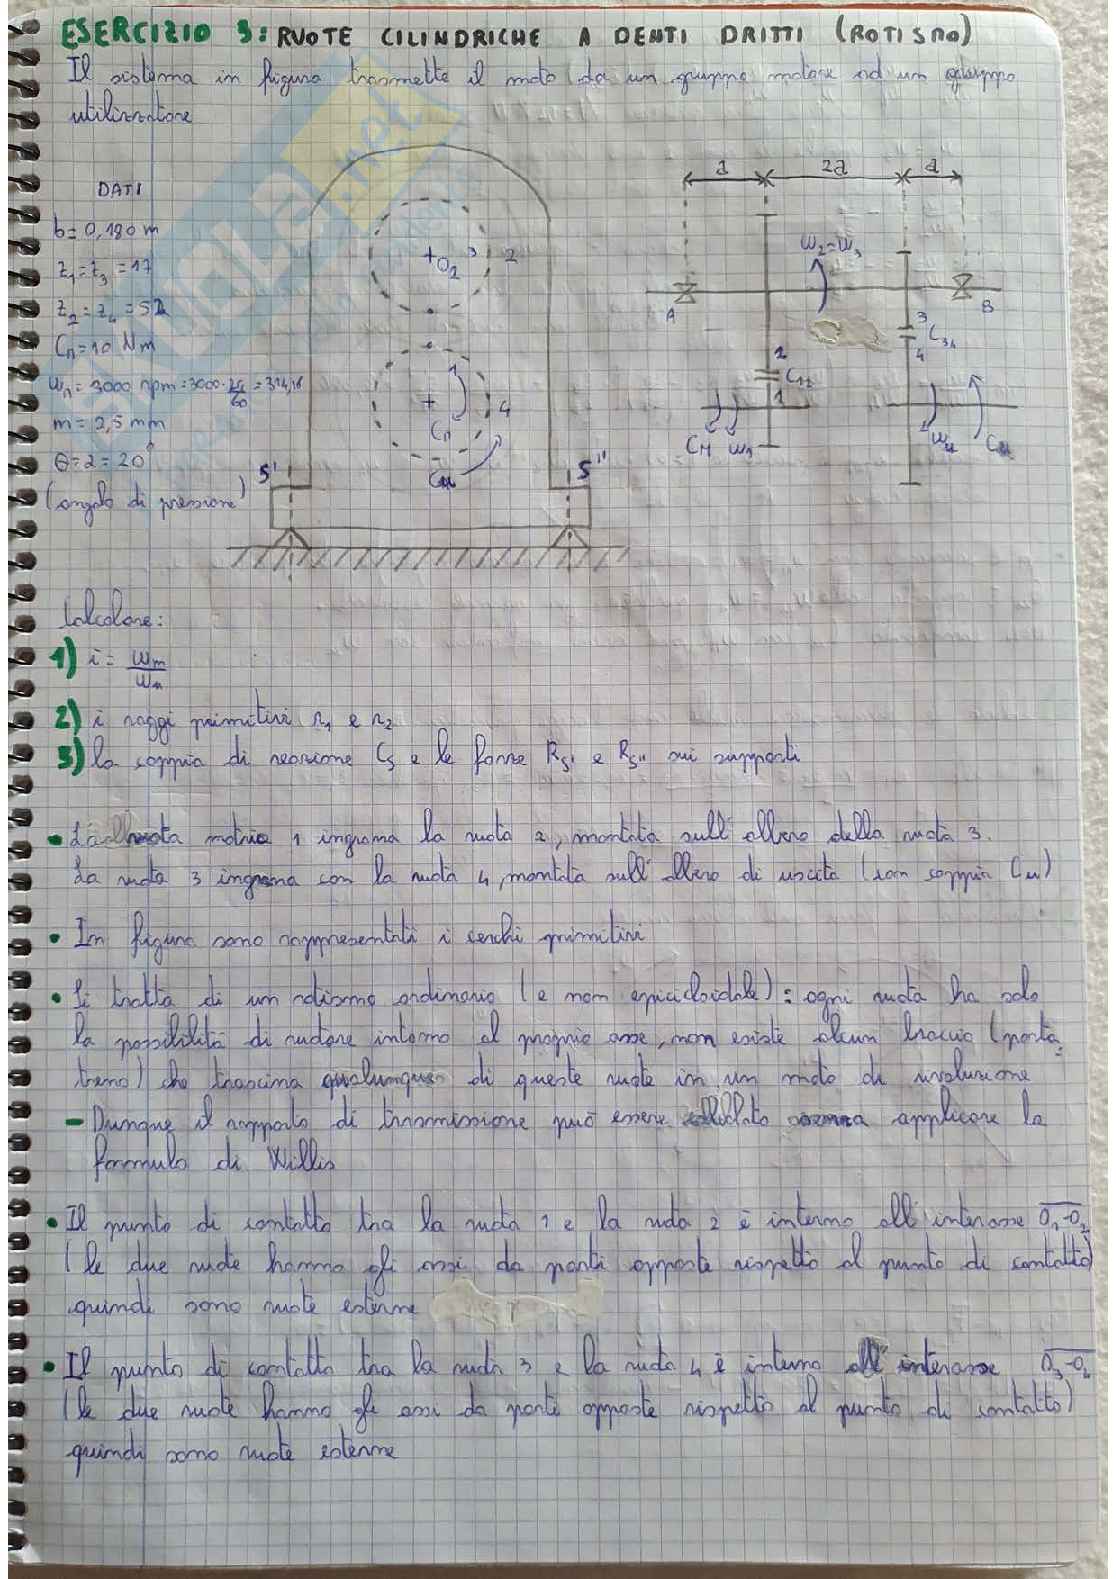 ESERCIZIO 3: RUOTE CILINDRICHE A DENTI DRITTI (ROTISMO)
Il sistema in figura trasmette il moto da un gruppo motore ad un gruppo
utilizzatore
DATI
b = 0,180 m
z1 = z3 = 17
z2 = z4 = 52
Cm = 10 Nm
ωm = 3000 rpm = 3000 · 2π/60 = 314,16
m = 2,5 mm
θ = α = 20°
(angolo di pressione)
+O2 3 2
1
+ 4
Cm
Cu
S' S''
a 2a a
ω2=ω3
A B
2 C12
1
3 C34
4
CM ω1
ω4 Cu
Calcolare:
1) i = ωm/ωu
2) i raggi primitivi r1 e r2
3) la coppia di reazione Cs e le forze Rs' e Rs'' sui supporti
• La ruota motrice 1 ingrana la ruota 2, montata sull'albero della ruota 3.
La ruota 3 ingrana con la ruota 4, montata sull'albero di uscita (con coppia Cu)
• In figura sono rappresentati i cerchi primitivi
• Si tratta di un rotismo ordinario (e non epicicloidale): ogni ruota ha solo
la possibilità di ruotare intorno al proprio asse, non esiste alcun braccio (porta-
treno) che trascina qualunque di queste ruote in un moto di rivoluzione
- Dunque il rapporto di trasmissione può essere calcolato senza applicare la
formula di Willis
• Il punto di contatto tra la ruota 1 e la ruota 2 è interno all'interasse O1-O2
(le due ruote hanno gli assi da parti opposte rispetto al punto di contatto)
quindi sono ruote esterne
• Il punto di contatto tra la ruota 3 e la ruota 4 è interno all'interasse O3-O4
(le due ruote hanno gli assi da parti opposte rispetto al punto di contatto)
quindi sono ruote esterne